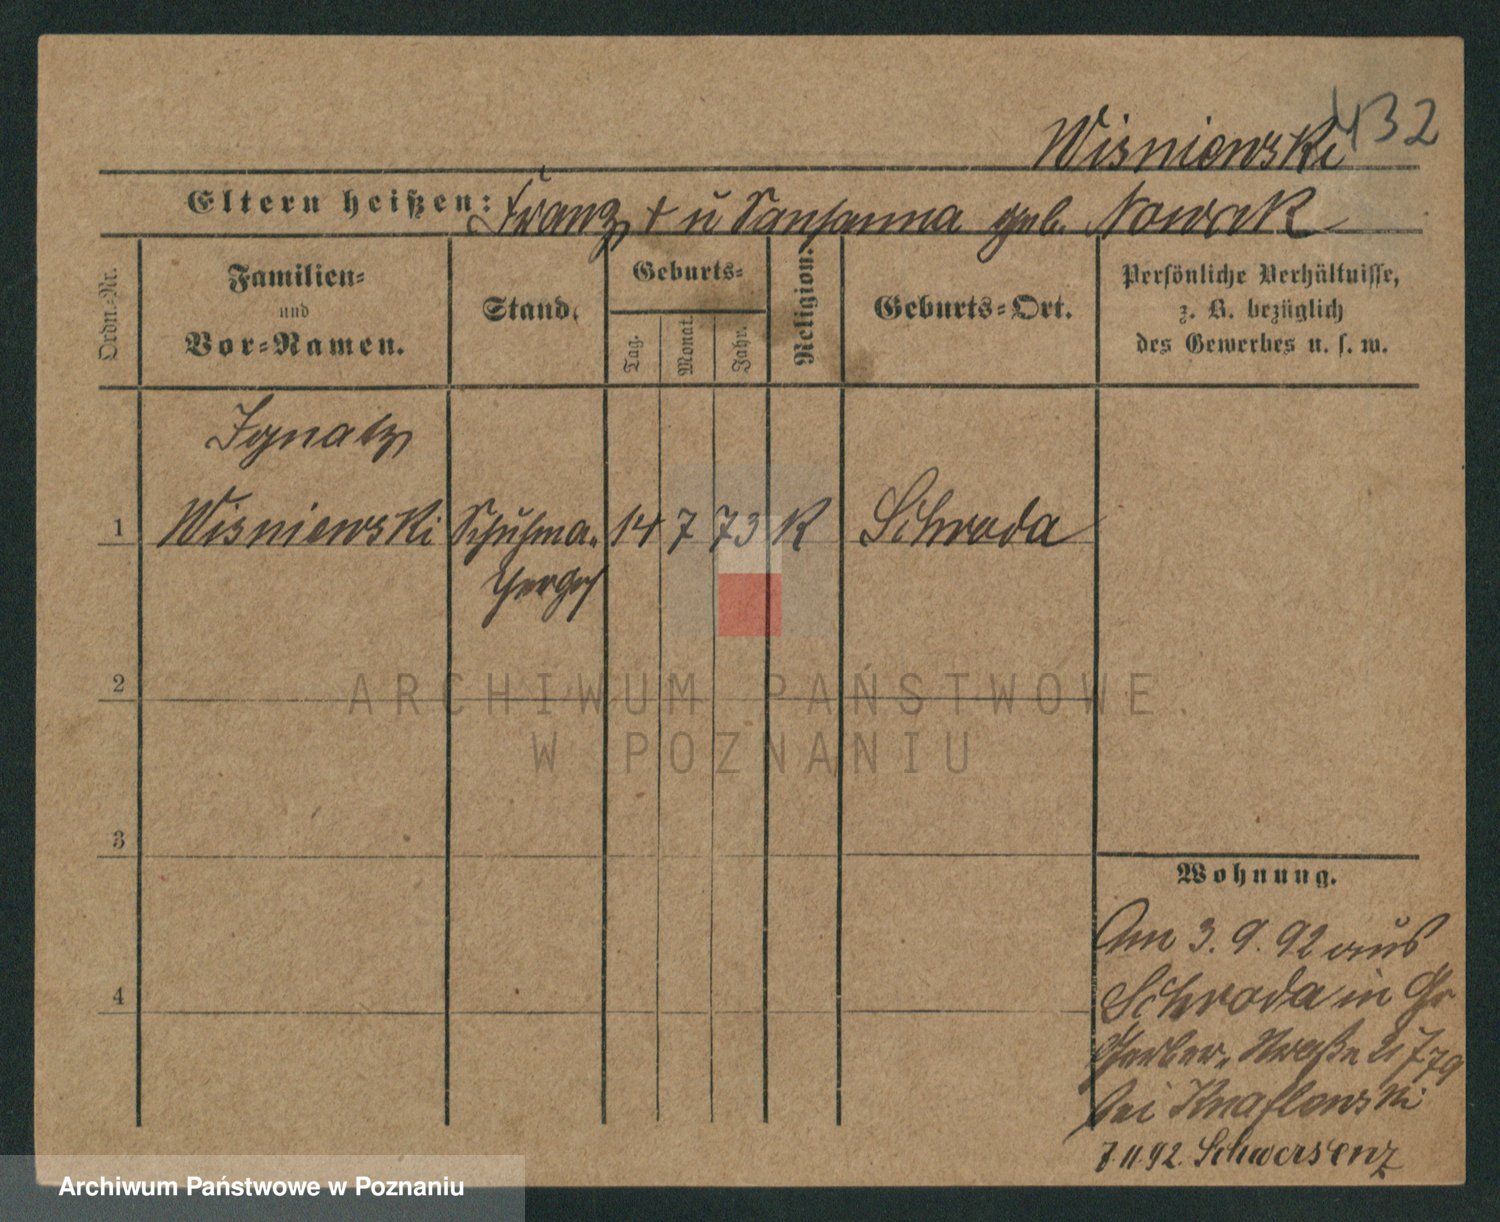 432
Wisniewski
Eltern heißen: Franz † u Sansanna geb. Nowak
Ordn.-Nr.
Familien-
und
Vor-Namen.
Stand.
Geburts-
Tag.
Monat.
Jahr.
Religion.
Geburts-Ort.
Persönliche Verhältnisse,
z. B. bezüglich
des Gewerbes u. s. w.
Ignatz
1 Wisniewski Schuhma- 14 7 73 K Schroda
cherges
2
3
4
Wohnung.
Am 3. 9. 92 aus
Schroda in Gr
Gerber-Straße
bei
7.11.92. Schwersenz
ARCHIWUM PAŃSTWOWE
W POZNANIU
Archiwum Państwowe w Poznaniu